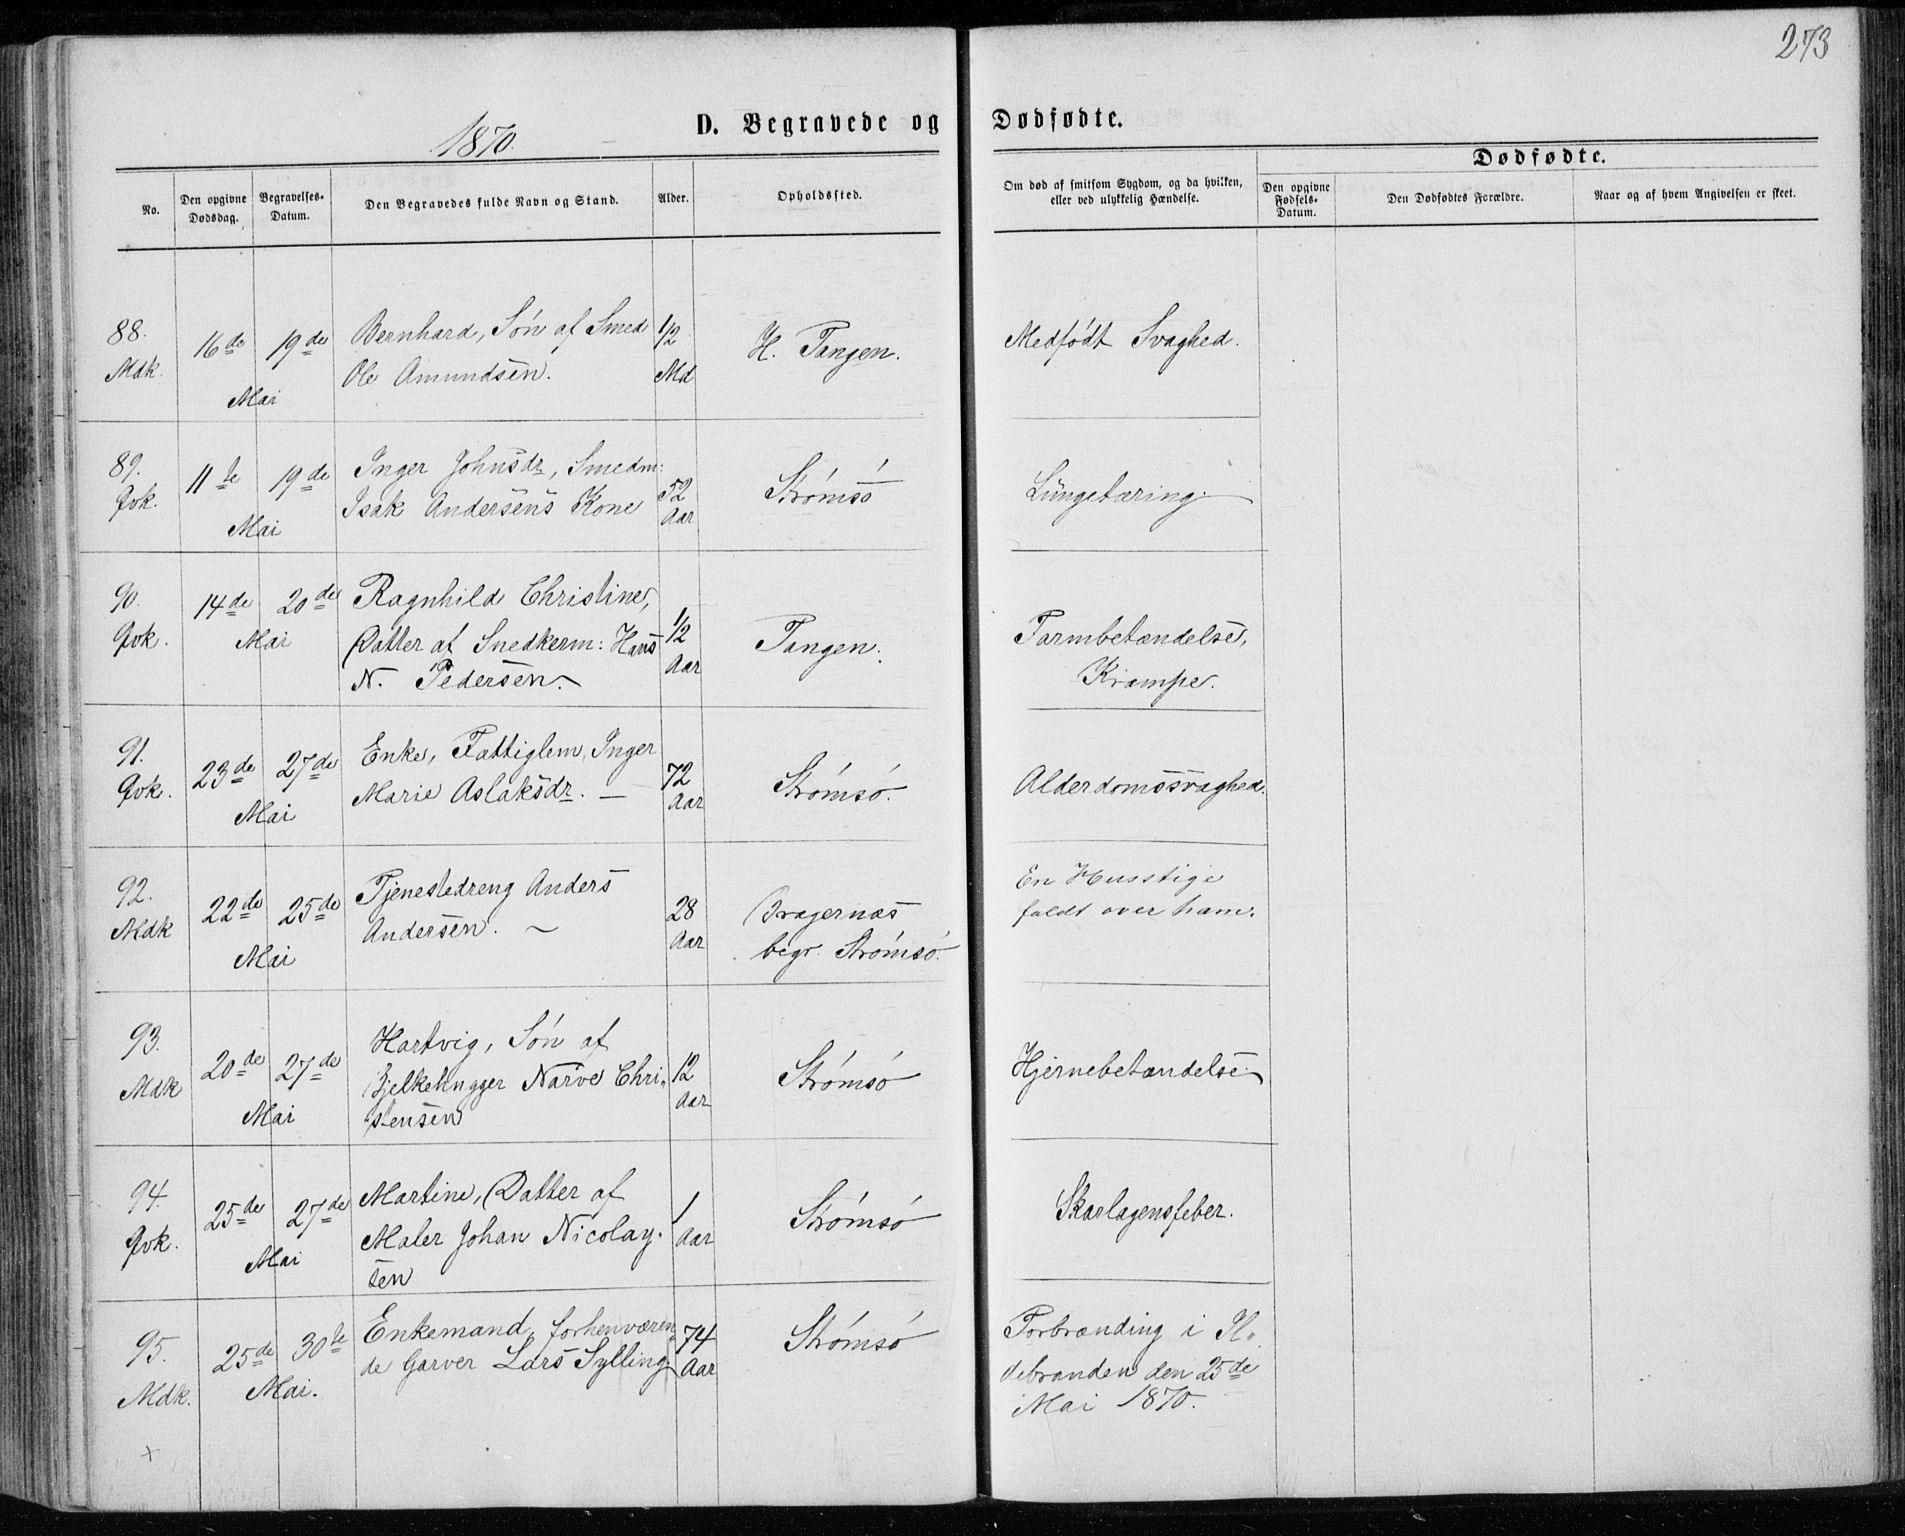 273
1870.
D. Begravede og Dødfødte.
Dødfødte.
No.
Den opgivne Dødsdag.
Begravelses-Datum.
Den Begravedes fulde Navn og Stand.
Alder.
Opholdssted.
Om død af smitsom Sygdom, og da hvilken,
eller ved ulykkelig Hændelse.
Den opgivne Fødsels-Datum.
Den Dødfødtes Forældre.
Naar og af hvem Angivelsen er skeet.
88. Mdk. 16de 19de Mai
Bernhard, Søn af Smed
Ole Amundsen.
1/2 Md
H. Tangen.
Medfødt Svaghed.
89. Qvk. 11te 19de Mai
Inger Johnsdr, Smedm:
Isak Andersens Kone
52 Aar
Strømsø
Lungetæring.
90. Qvk. 14de 20de Mai
Ragnhild Christine,
Datter af Snedkerm: Hans
N. Pedersen.
1/2 Aar
Tangen.
Tarmbetændelse,
Krampe.
91. Qvk. 23de 27de Mai
Enke, Fattiglem, Inger
Marie Aslaksdr. —
72 Aar
Strømsø.
Alderdomssvaghed.
92. Mdk 22de 25de Mai
Tjenestedreng Anders
Andersen. ~
28 Aar
Bragernæs
begr. Strømsø.
En Husstige
faldt over ham.
93. Mdk 20de 27de Mai
Hartvig, Søn af
Bjelkehugger Narve Chri-
stensen
12 Aar
Strømsø
Hjernebetændelse
94. Qvk. 25de 27de Mai
Martine, Datter af
Maler Johan Nicolay-
sen
1 Aar
Strømsø
Skarlagensfeber.
95. Mdk. 25de 30te Mai.
Enkemand, forhenværen-
de Garver Lars Sylling
74 Aar
Strømsø
Forbrænding i Il-
debranden den 25de
Mai 1870.
+